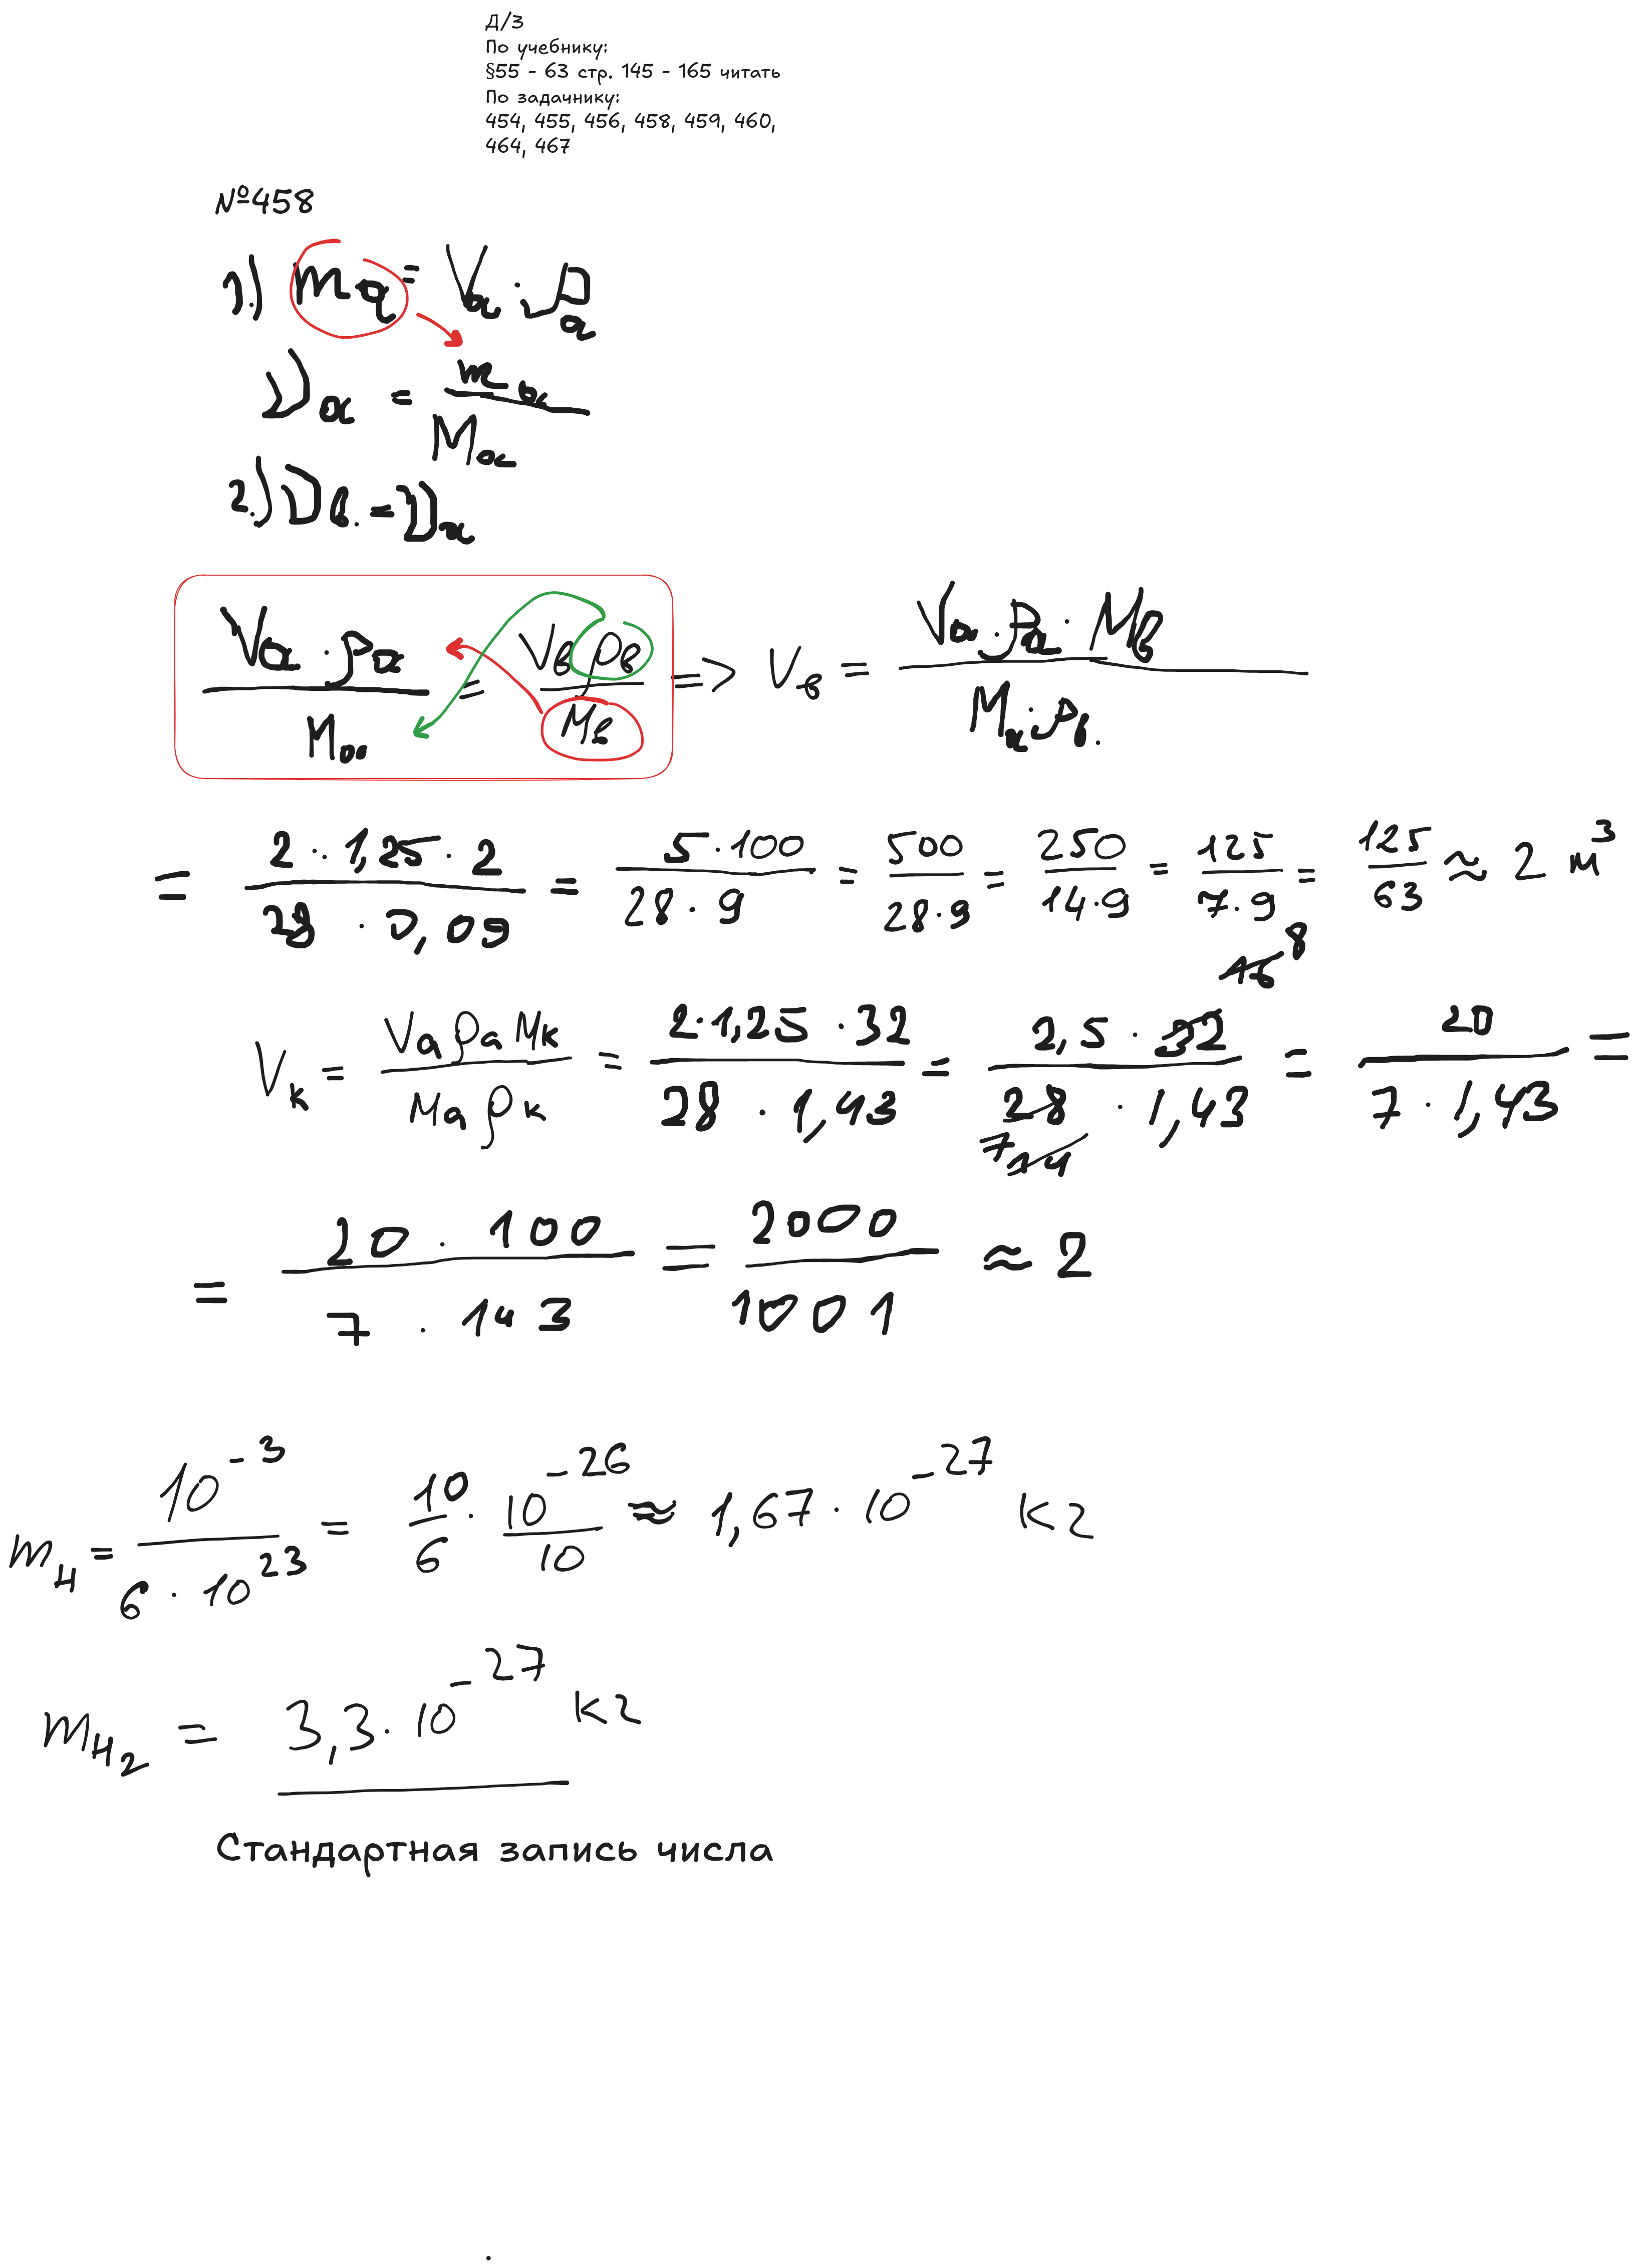 Д/З
По учебнику:
§55 - 63 стр. 145 - 165 читать
По задачнику:
454, 455, 456, 458, 459, 460,
464, 467
№458
1.) mₐ = Vₐ · ρₐ
νₐ = mₐ / Mₐ
2.) νв. = νₐ
Vₐ · ρₐ / Mₐ = Vвρв / Mв => Vв = Vₐ · ρₐ · Mв / Mₐ · ρв.
= 2 · 1,25 · 2 / 28 · 0,09 = 5 · 100 / 28 · 9 = 500 / 28 · 9 = 250 / 14 · 9 = 125 / 7 · 9 = 125 / 63 ≈ 2 м³
16 8
Vк = Vₐ ρₐ Mк / Mₐ ρк = 2 · 1,25 · 32 / 28 · 1,43 = 2,5 · 32 / 28 · 1,43 = 20 / 7 · 1,43 =
7 14
= 20 · 100 / 7 · 143 = 2000 / 1001 ≈ 2
mH = 10⁻³ / 6 · 10²³ = 10/6 · 10⁻²⁶ / 10 ≈ 1,67 · 10⁻²⁷ кг
mH₂ = 3,3 · 10⁻²⁷ кг
Стандартная запись числа